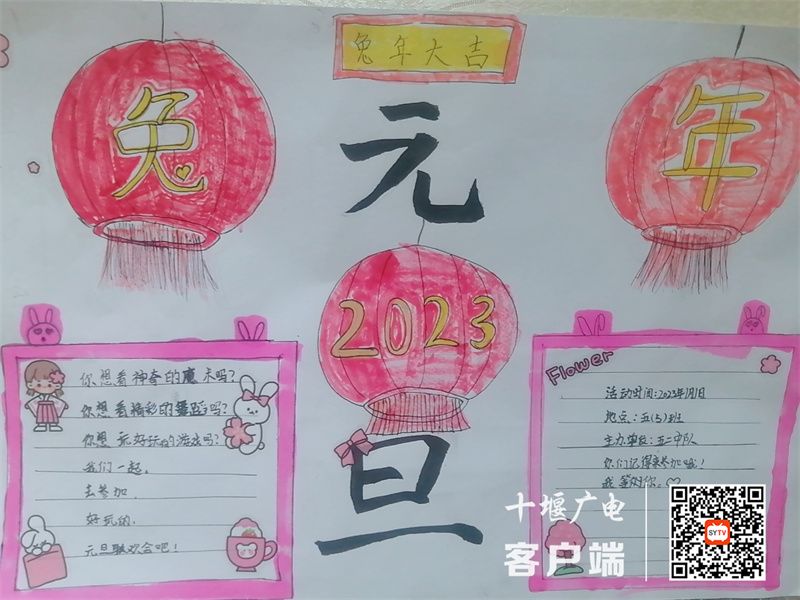 兔年大吉
兔
年
元
2023
旦
你想看神奇的魔术吗？
你想看精彩的舞蹈吗？
你想玩好玩的游戏吗？
我们一起，
去参加，
好玩的，
元旦联欢会吧！
Flower
活动时间：2023年1月1日
地点：五(5)班
主办单位：五二中队
你们记得来参加哦！
我等到你。
十堰广电
客户端
SYTV